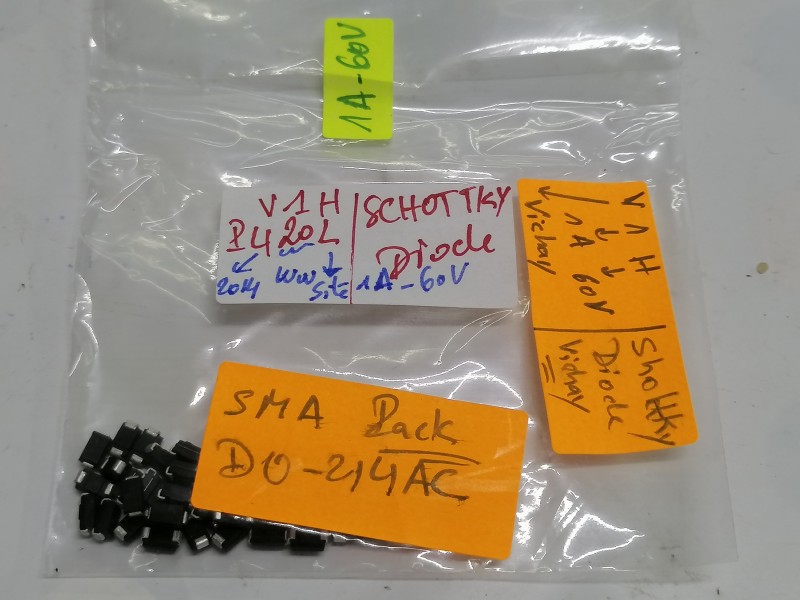 1A-60V
V 1 H
P420L
2014 WW Site
SCHOTTKY
Diode
1A-60V
V 1 H
1A 60V
Vichay
Shottky
Diode
Vichay
SMA Pack
DO-214AC